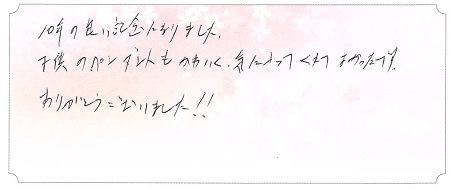 10年の良い記念になりました。
子供のペンダントもかわいく、気に入ってくれてよかったです。
ありがとうございました!!